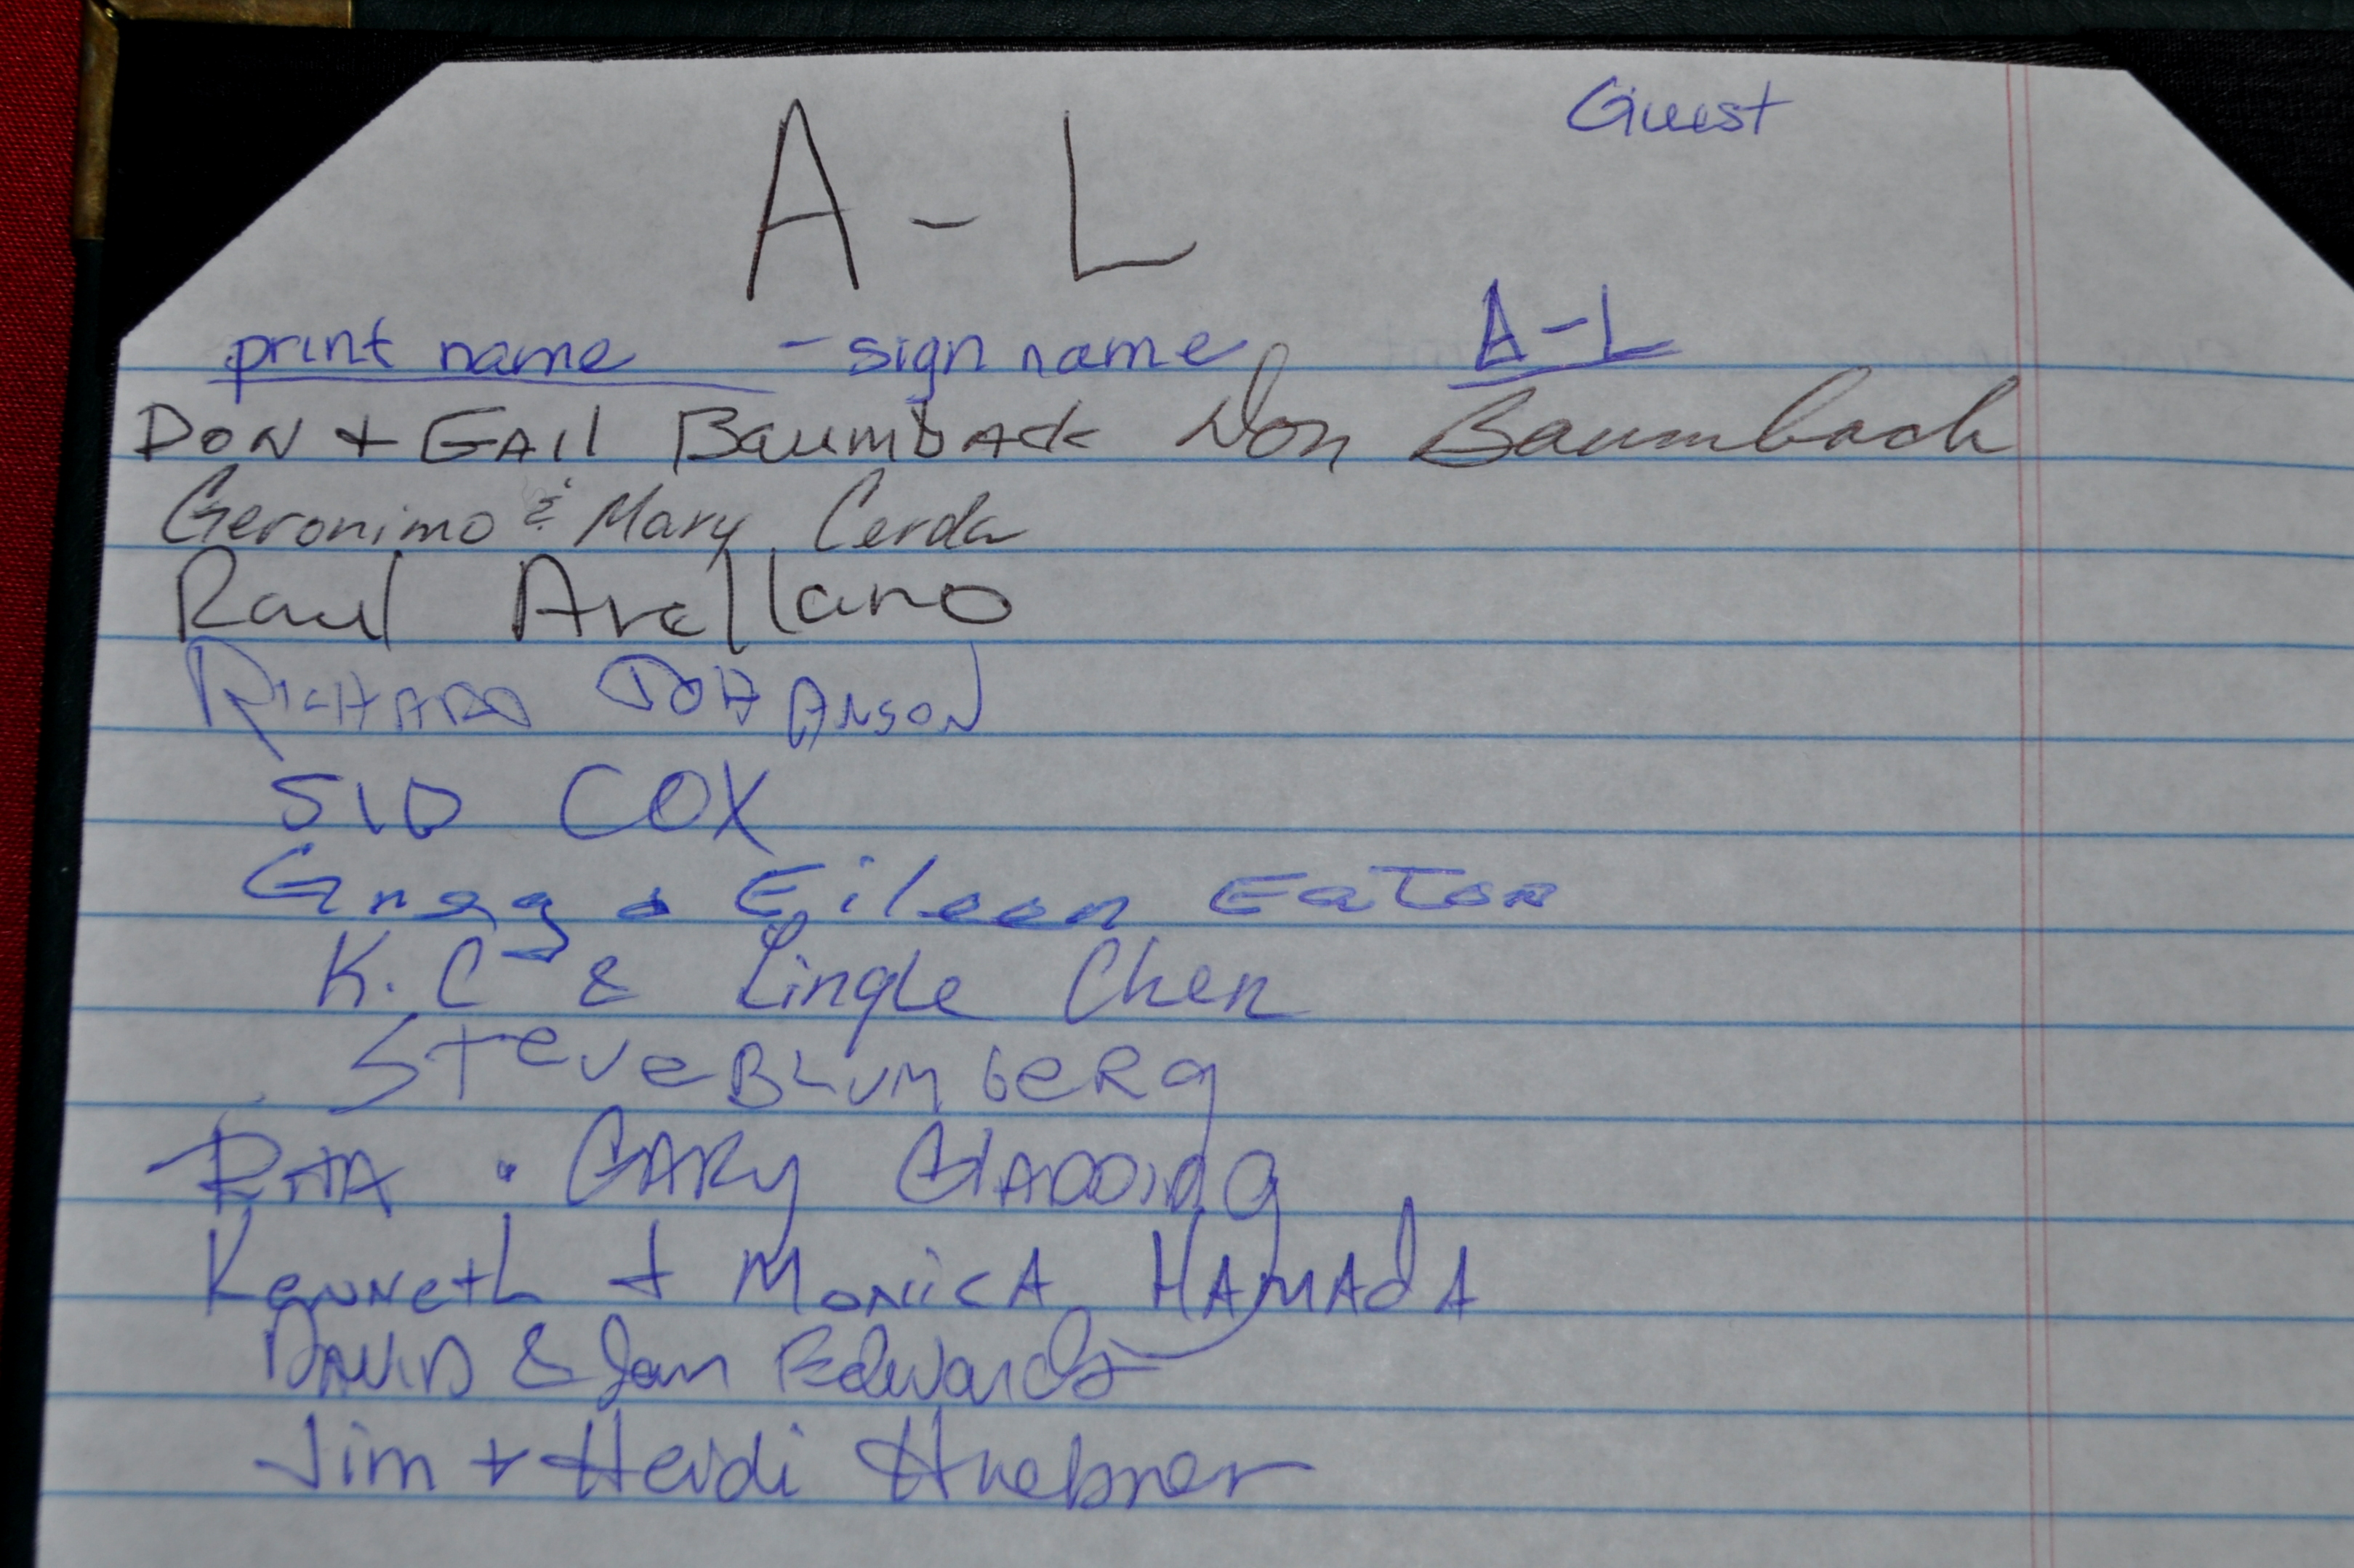 Guest
A - L
print name - sign name A-L
DON + GAIL BaumbAck Don Baumbach
Geronimo & Mary Cerda
Raul Arellano
RICHARD JOHANSON
SID COX
Greg & Eileen Eaton
K. C & Lingle Chen
Steve BLUMbeRg
RITA . GARY GlADDING
Kenneth + MONicA HAMAdA
DAVID & Jan Edwards
Jim + Heidi Huebner